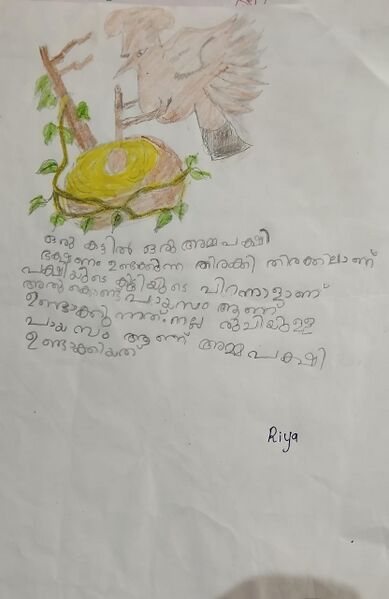 ഒരു കട്ടിൽ ഒരു അമ്മ പക്ഷി
ഭക്ഷണം ഉണ്ടക്കുന്ന തിരക്കി തിരക്കിലാണ്
പക്ഷിയുടെ കുട്ടിയുടെ പിറന്നാളാണ്
അതു കൊണ്ട് പായസം ആണ്
ഉണ്ടാക്കു ന്നത്. നല്ല രുചിയുള്ള
പായ സം ആണ് അമ്മ പക്ഷി
ഉണ്ടാക്കിയത്
Riya